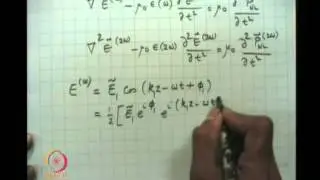 ∇² E^(ω) − μ₀ ε(ω) ∂²E^(ω)/∂t² = μ₀ ∂²P_NL^(ω)/∂t²
∇² E⃗^(2ω) − μ₀ ε(2ω) ∂²E⃗^(2ω)/∂t² = μ₀ ∂²P⃗_NL^(2ω)/∂t²
E^(ω) = Ẽ₁ cos (k₁z − ωt + φ₁)
= ½ [ Ẽ₁ e^{iφ₁} e^{i(k₁z − ωt